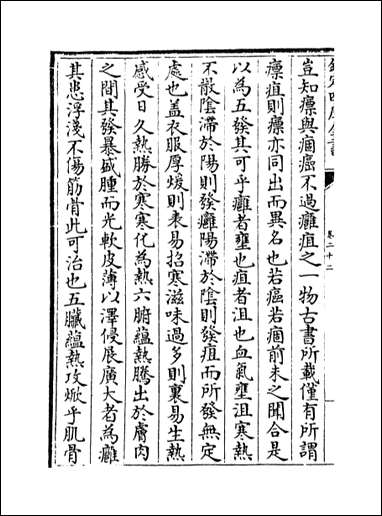 欽定四庫全書
卷二十二
豈知瘭與痼癌不過癰疽之一物古書所載僅有所謂
瘭疽則瘭亦同出而異名也若癌若痼前未之聞合是
以為五發其可乎癰者壅也疽者沮也血氣壅沮寒熱
不散陰滯於陽則發癰陽滯於陰則發疽而所發無定
處也蓋衣服厚煖則表易招寒滋味過多則裏易生熱
感受日久熱勝於寒寒化為熱六腑蘊熱騰出於膚肉
之間其發暴盛腫而光軟皮薄以澤侵展廣大者為癰
其患浮淺不傷筋骨此可治也五臟蘊熱攻焮乎肌骨